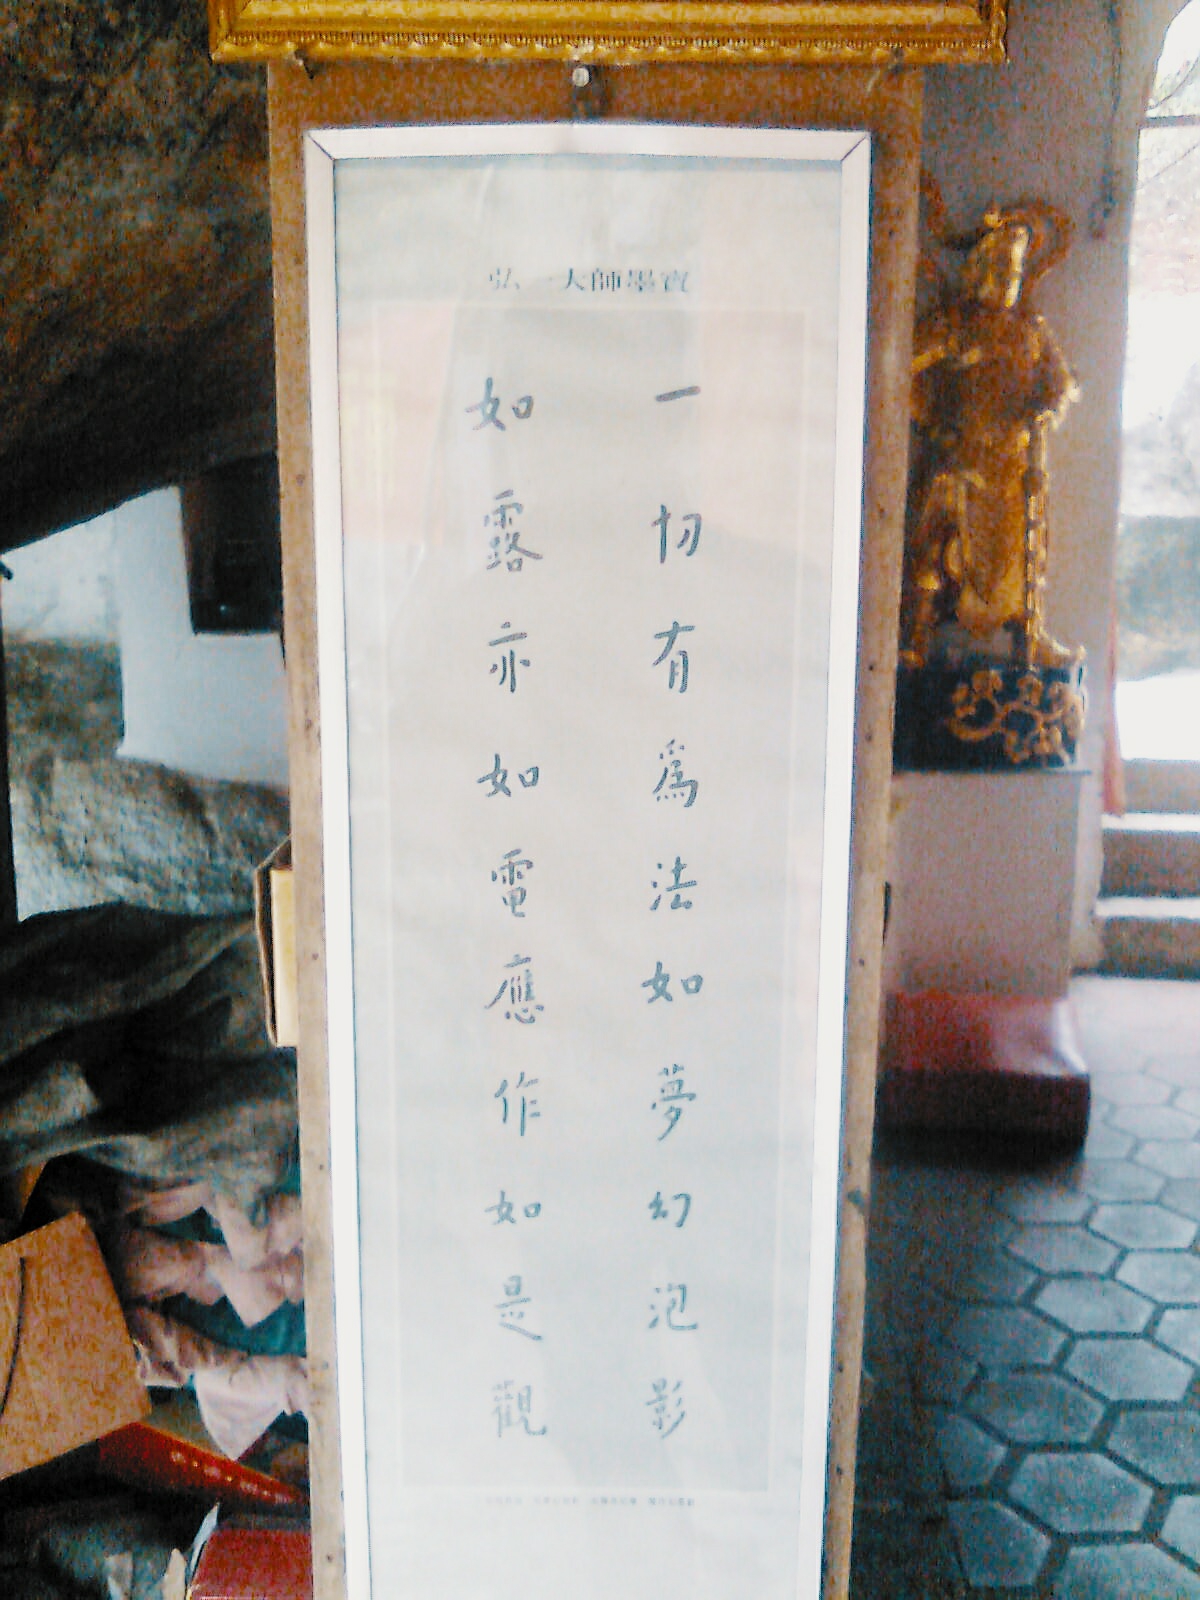 弘一大師墨寶
一切有爲法如夢幻泡影
如露亦如電應作如是觀